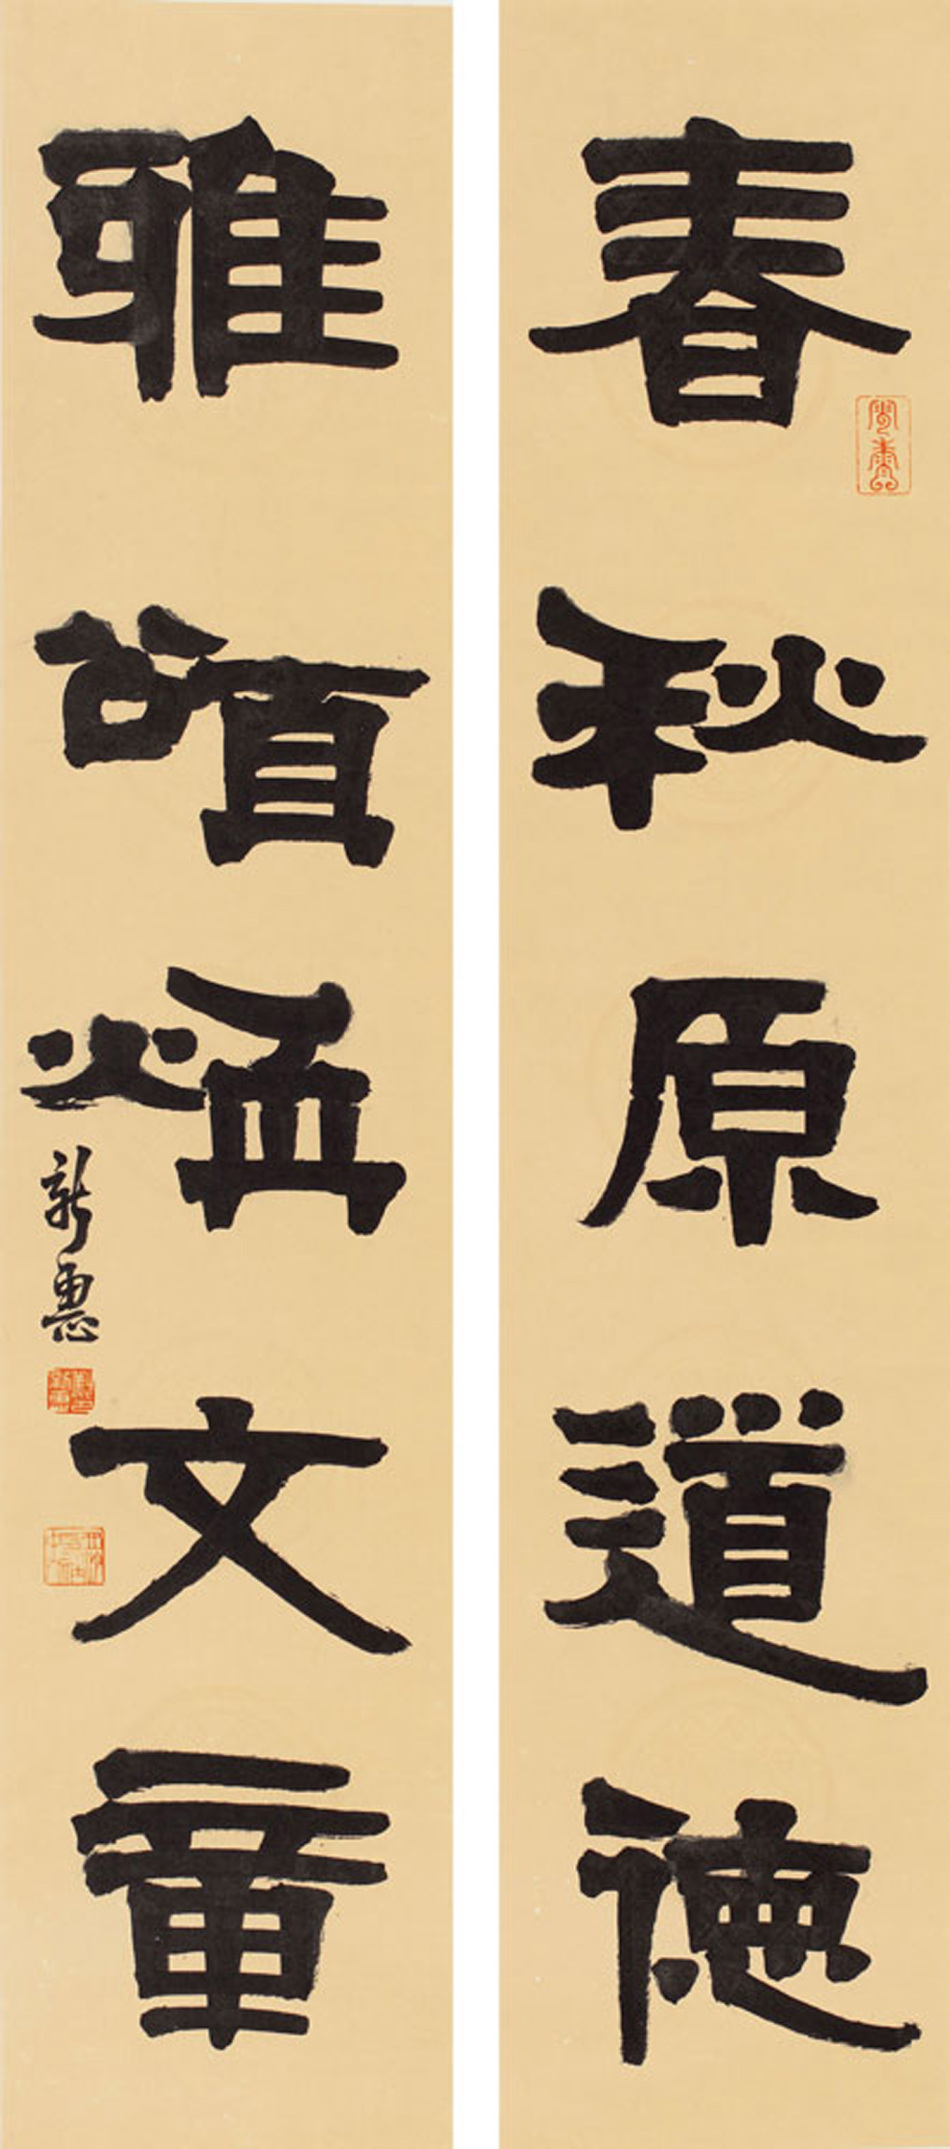 春秋原道德
雅頌煥文章
新惠